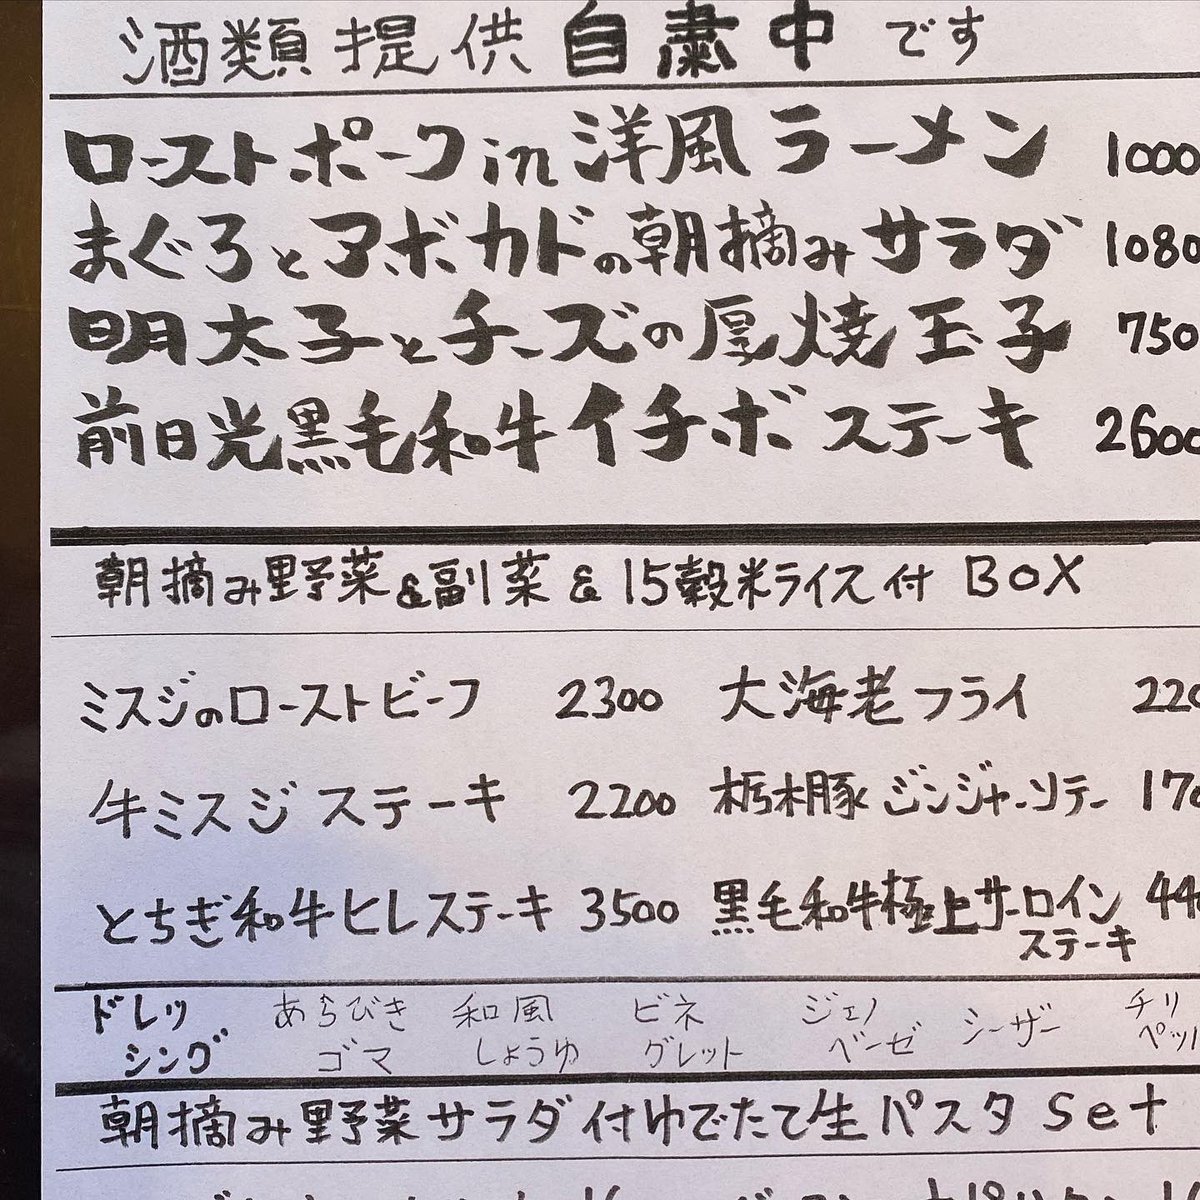 酒類提供自粛中です
ローストポークin洋風ラーメン 1000
まぐろとアボカドの朝摘みサラダ 1080
明太子とチーズの厚焼玉子 750
前日光黒毛和牛イチボステーキ 2600
朝摘み野菜&副菜&15穀米ライス付 BOX
ミスジのローストビーフ 2300 大海老フライ 220
牛ミスジステーキ 2200 栃木豚ジンジャーソテー 170
とちぎ和牛ヒレステーキ 3500 黒毛和牛極上サーロイン 44
ステーキ
ドレッ あらびき 和風 ビネ ジェノ シーザー チリ
シング ゴマ しょうゆ グレット ベーゼ ペッパ
朝摘み野菜サラダ付ゆでたて生パスタ Set